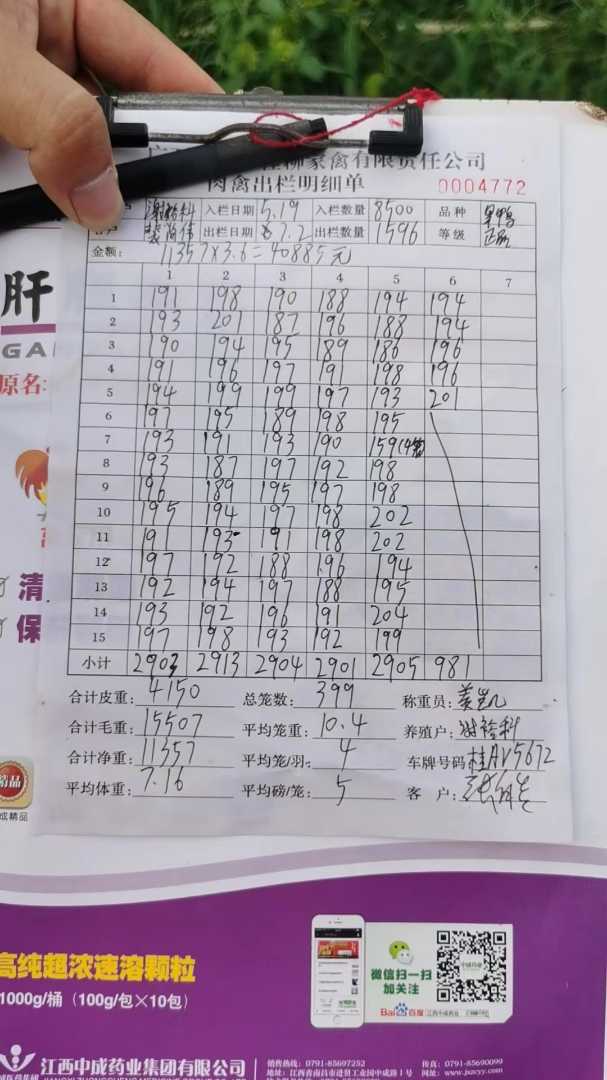 家禽有限责任公司
肉禽出栏明细单 0004772
入栏日期 5.19 入栏数量 8500 品种
出栏日期 7.2 出栏数量 1596 等级
金额: 11357×3.6=40885元
1 2 3 4 5 6 7
1 191 198 190 188 194 194
2 193 201 187 196 188 194
3 190 194 195 189 186 196
4 191 196 197 191 198 196
5 194 199 199 197 193 201
6 197 195 189 198 195
7 193 191 193 190 159(4笼)
8 193 187 197 192 198
9 196 189 195 197 198
10 195 194 197 198 202
11 191 193 191 198 202
12 197 192 188 196 194
13 192 194 197 188 195
14 193 192 196 191 204
15 197 198 193 192 199
小计 2903 2913 2904 2901 2905 981
合计皮重: 4150 总笼数: 399 称重员:
合计毛重: 15507 平均笼重: 10.4 养殖户:
合计净重: 11357 平均笼/羽: 4 车牌号码 桂AV5672
平均体重: 7.16 平均磅/笼: 5 客户:
肝
GA
原名:
清
保
精品
成精品
高纯超浓速溶颗粒
1000g/桶（100g/包×10包）
微信扫一扫
加关注
Bai百度 江西中成药业
江西中成药业集团有限公司
销售热线: 0791-85697252 传真: 0791-85690099
地址: 江西省南昌市进贤工业园中成路1号 网址: www.jxzcyy.com